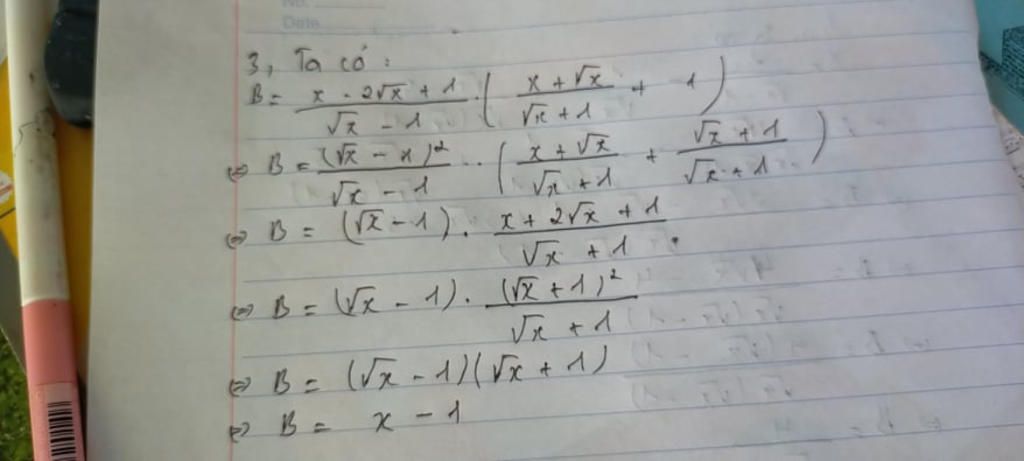 No.
Date
3, Ta có :
B = \frac{x - 2\sqrt{x} + 1}{\sqrt{x} - 1} \cdot \left( \frac{x + \sqrt{x}}{\sqrt{x} + 1} + 1 \right)
⇔ B = \frac{(\sqrt{x} - 1)^2}{\sqrt{x} - 1} \cdot \left( \frac{x + \sqrt{x}}{\sqrt{x} + 1} + \frac{\sqrt{x} + 1}{\sqrt{x} + 1} \right)
⇔ B = (\sqrt{x} - 1) \cdot \frac{x + 2\sqrt{x} + 1}{\sqrt{x} + 1}
⇔ B = (\sqrt{x} - 1) \cdot \frac{(\sqrt{x} + 1)^2}{\sqrt{x} + 1}
⇔ B = (\sqrt{x} - 1)(\sqrt{x} + 1)
⇔ B = x - 1